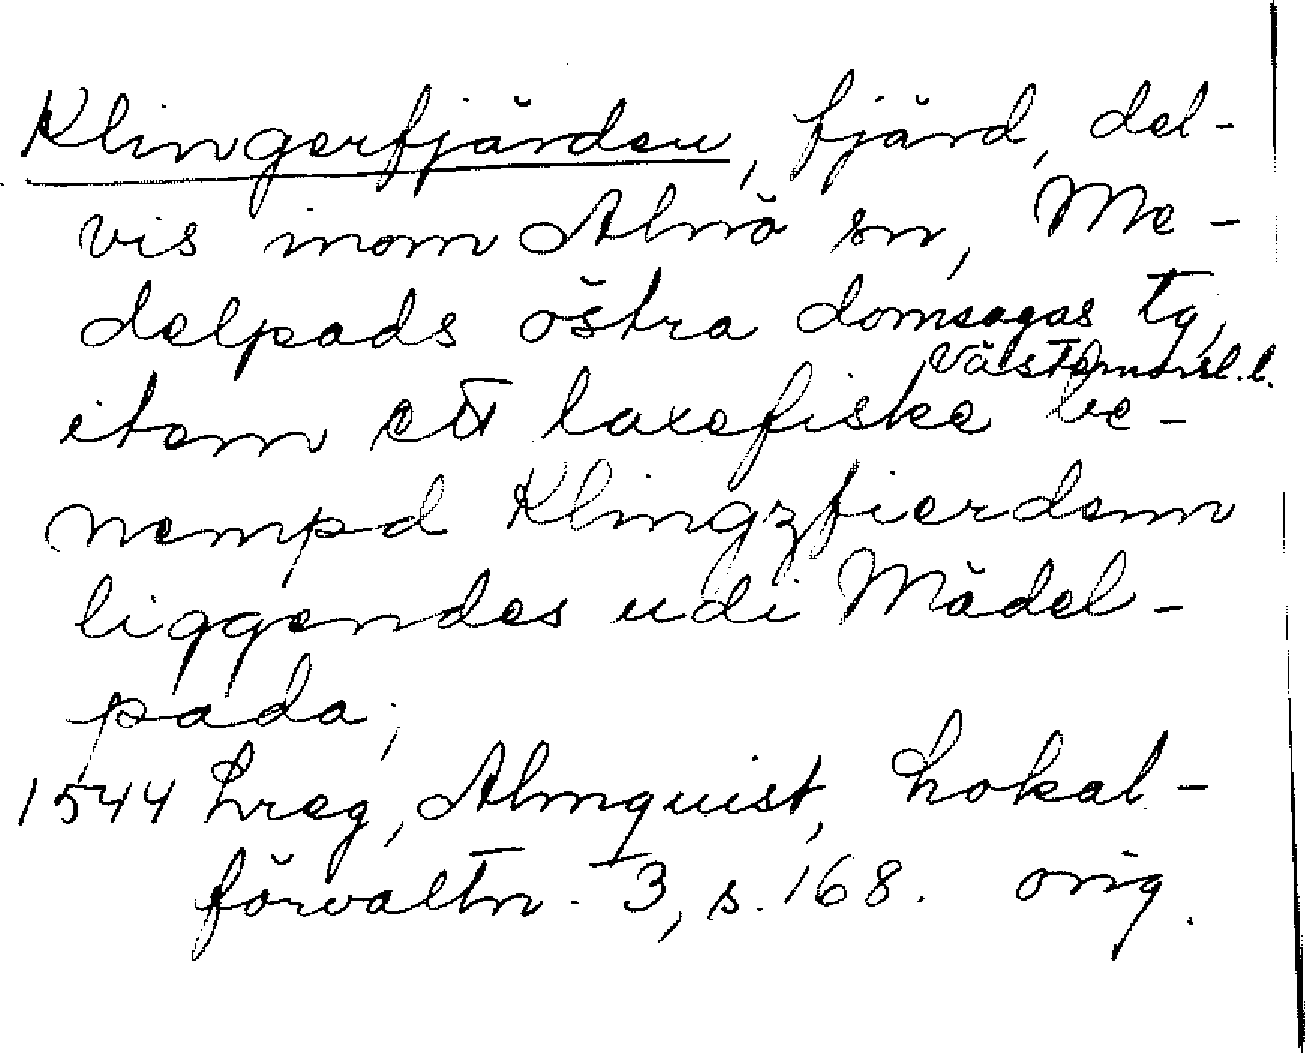 Klingerfjärden, fjärd, del-
vis inom Alnö sn, Me-
delpads östra domsagas tg,
Västernorrl. l.
item ett laxefiske be-
nempd Klingzfierdenn
liggendes udi Mädel-
pada;
1544 Lreg, Almquist, Lokal-
förvaltn. 3, s. 168. orig.